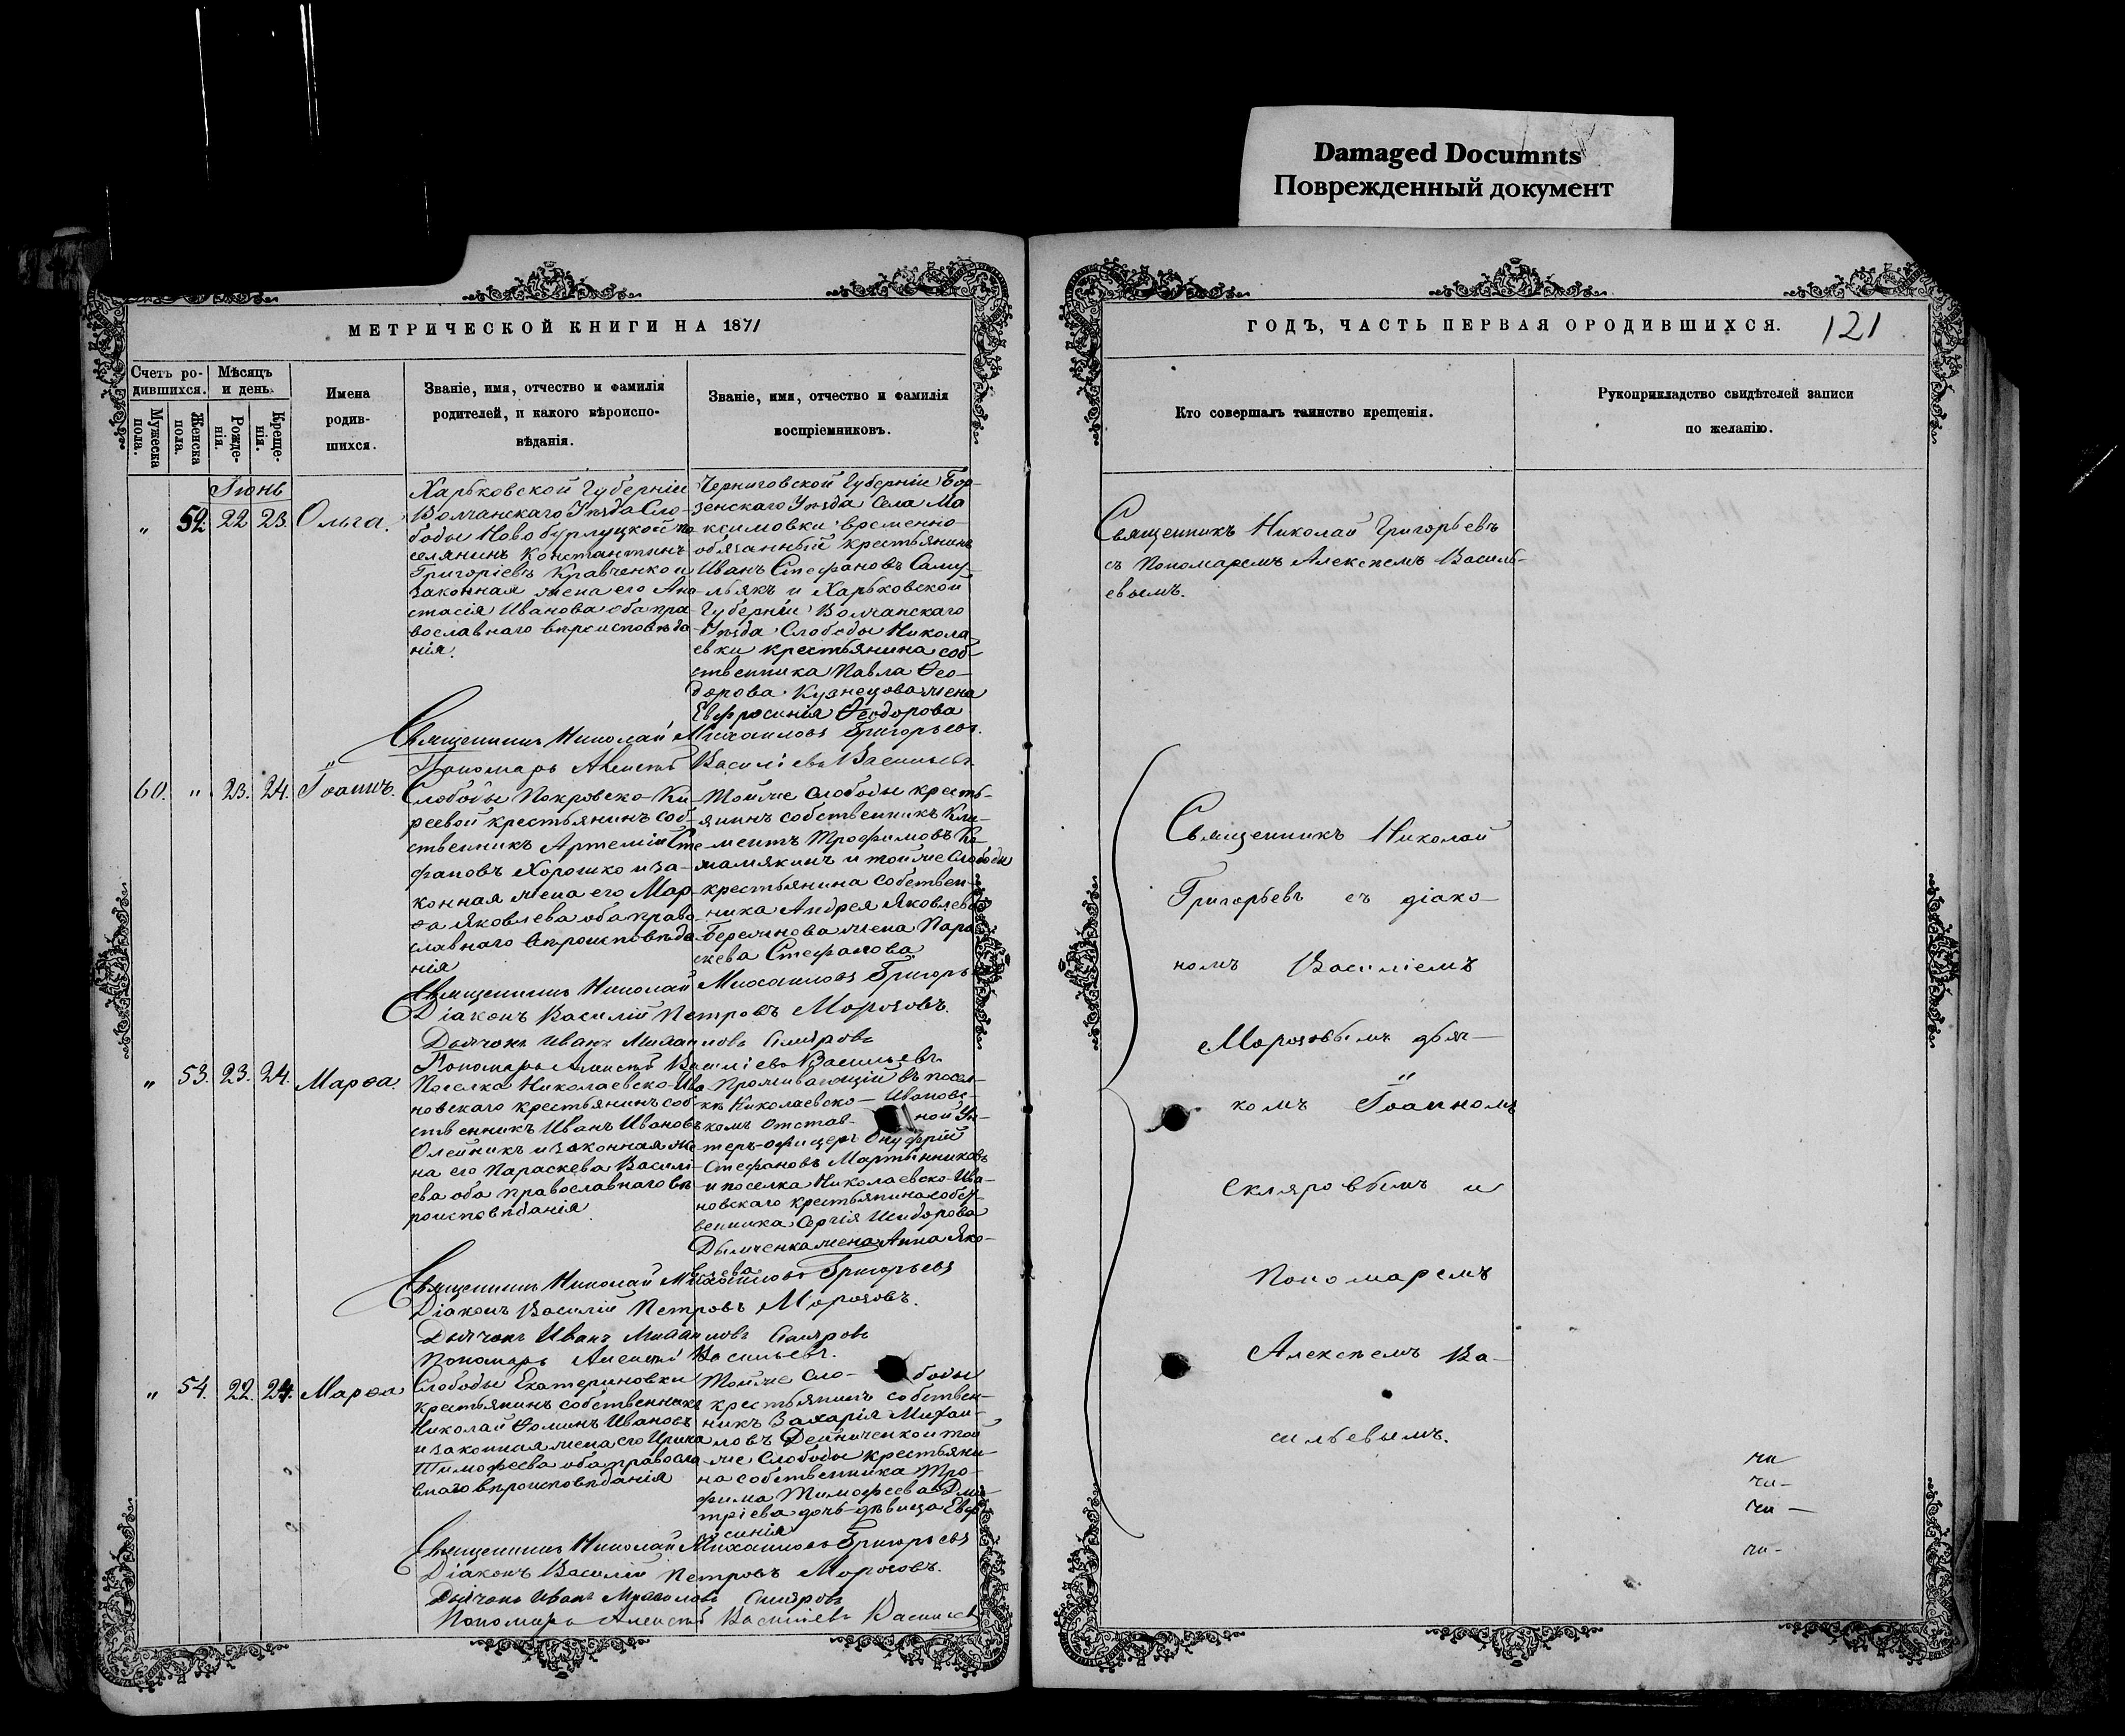 Damaged Documnts
Поврежденный документ
МЕТРИЧЕСКОЙ КНИГИ НА 1871
ГОДЪ, ЧАСТЬ ПЕРВАЯ ОРОДИВШИХСЯ.
121
Счетъ ро-
дившихся.
Мужеска
пола.
Женска
пола.
Мѣсяцъ
и день.
Рожде-
нія.
Креще-
нія.
Имена
родив-
шихся.
Званіе, имя, отчество и фамилія
родителей, и какого вѣроиспо-
вѣданія.
Званіе, имя, отчество и фамилія
воспріемниковъ.
Кто совершалъ таинство крещенія.
Рукоприкладство свидѣтелей записи
по желанію.
Іюнь
" 52. 22 23. Ольга.
Харьковской Губерніи
Волчанскаго Уѣзда Сло-
боды Новобурлуцкой по
селянинъ Константинъ
Григоріевъ Кравченко и
законная жена его Ана
стасія Иванова оба пра
вославнаго вѣроисповѣда
нія.
Черниговской Губерніи Бор-
зенскаго Уѣзда Села Ма
ксимовки временно-
обязанный крестьянинъ
Иванъ Стефановъ Саму-
льякъ и Харьковской
Губерніи Волчанскаго
Уѣзда Слободы Никола-
евки крестьянина соб-
ственника Павла Ѳео-
дорова Кузнецова жена
Евфросинія Ѳеодорова
Священникъ Николай Михаиловъ Григорьевъ.
Пономарь Алексѣй Василіевъ Васильевъ.
Священникъ Николай Григорьевъ
съ Пономаремъ Алексѣемъ Василь-
евымъ.
60. " 23. 24. Іоаннъ.
Слободы Покровско-Ки
реевой крестьянинъ соб-
ственникъ Артемій Сте
фановъ Хорошко и за-
конная жена его Мар-
ѳа Яковлева оба право-
славнаго вѣроисповѣда
нія
Тойже слободы кресть-
янинъ собственникъ Кли-
ментъ Трофимовъ
и тойже Слободы
крестьянина собствен-
ника Андрея Яковлева
жена Пара
скева Стефанова
Священникъ Николай Михаиловъ Григорьевъ
Діаконъ Василій Петровъ Морозовъ.
Дьячокъ Иванъ Михаиловъ Скляровъ
Пономарь Алексѣй Василіевъ Васильевъ
" 53. 23. 24. Марѳа.
Поселка Николаевско-Ива
новскаго крестьянинъ соб-
ственникъ Иванъ Ивановъ
Олейникъ и законная же
на его Параскева Василі-
ева оба православнаго вѣ
роисповѣданія
Проживающій въ посел-
кѣ Николаевско-Ивановс-
комъ отставной Ун-
теръ-офицеръ Онуфрій
Стефановъ Мартынниковъ
и поселка Николаевско-Ива-
новскаго крестьянина собст-
венника Сергія Исидорова
жена Анна Яко-
влева
Священникъ Николай Михаиловъ Григорьевъ
Діаконъ Василій Петровъ Морозовъ.
Дьячокъ Иванъ Михаиловъ Скляровъ
Пономарь Алексѣй Васильевъ.
" 54. 22. 24. Марѳа
Слободы Екатериновки
крестьянинъ собственникъ
Николай Ѳоминъ Ивановъ
и законная жена его Ирина
Тимофеева оба правосла
внаго вѣроисповѣданія
Тойже Слободы
крестьянинъ собствен-
никъ Захарія Михаи-
ловъ Дейниченко и той
же Слободы крестьяни-
на собственника Тро-
фима Тимофеева Дми-
тріева дочь-дѣвица Евф
росинія
Священникъ Николай Михаиловъ Григорьевъ
Діаконъ Василій Петровъ Морозовъ.
Дьячокъ Иванъ Михаиловъ Скляровъ
Пономарь Алексѣй Василіевъ Васильевъ
Священникъ Николай
Григорьевъ съ діако-
номъ Василіемъ
Морозовымъ дьяч-
комъ Іоанномъ
Скляровымъ и
Пономаремъ
Алексѣемъ Ва-
сильевымъ.